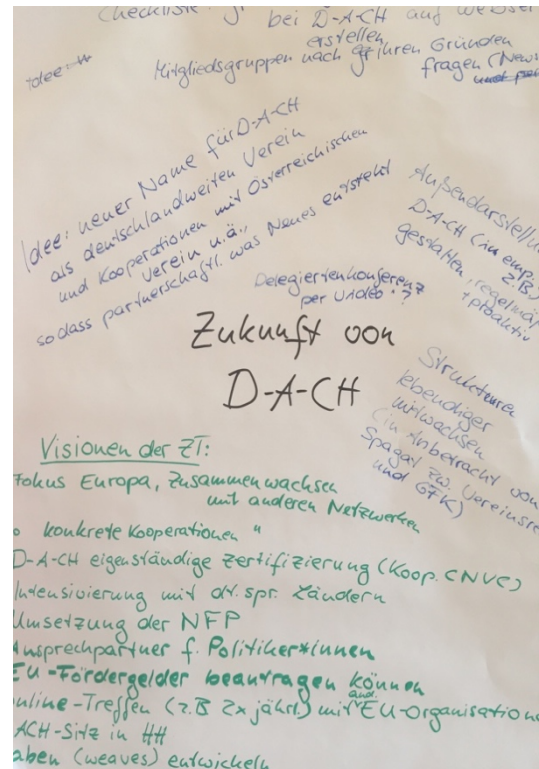 Checkliste
bei D-A-CH auf
erstellen
Idee
Mitgliedsgruppen nach ihren Gründen
fragen (News
Idee: neuer Name für D-A-CH
als deutschlandweiten Verein
und Kooperationen mit Österreichischen
Verein u.ä.,
sodass partnerschaftl. was Neues entsteht
Außendarstellu
D-A-CH (in emp.
z.B.)
gestalten, regelmä
+proaktiv
Delegiertenkonferenz
per Video?
Zukunft von
D-A-CH
Strukturen
lebendiger
mitwachsen
(in Anbetracht vom
Spagat zw. Vereinsre
und GFK)
Visionen der ZT:
Fokus Europa, Zusammenwachsen
mit anderen Netzwerken
konkrete Kooperationen "
D-A-CH eigenständige Zertifizierung (Koop. CNVC)
Intensivierung mit dt. spr. Ländern
Umsetzung der NFP
Ansprechpartner f. Politiker*innen
EU-Fördergelder beantragen können
nline-Treffen (z.B 2x jährl.) mit and. EU-Organisation
ACH-Sitz in HH
aben (weaves) entwickeln